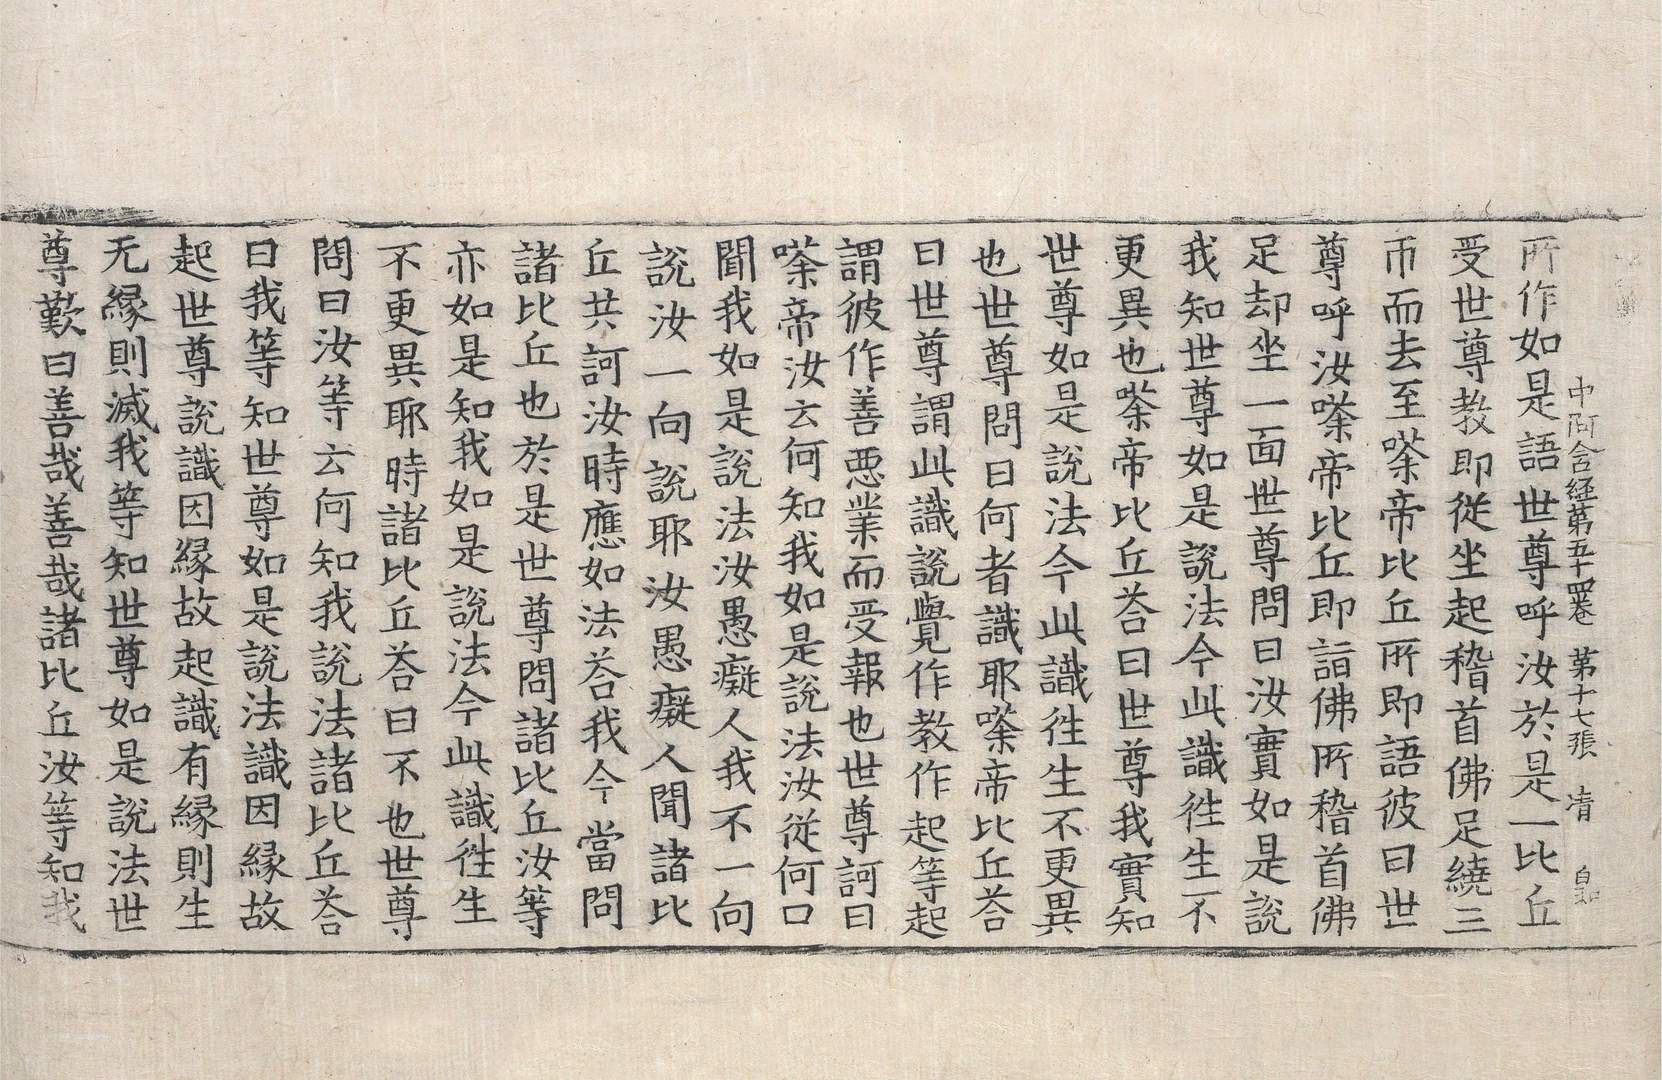 中阿含経第五十四卷 第十七張 清 白和
所作如是語世尊呼汝於是一比丘
受世尊教即從坐起稽首佛足繞三
帀而去至嗏帝比丘所即語彼曰世
尊呼汝嗏帝比丘即詣佛所稽首佛
足却坐一面世尊問曰汝實如是說
我知世尊如是說法今此識往生不
更異也嗏帝比丘荅曰世尊我實知
世尊如是說法今此識往生不更異
也世尊問曰何者識耶嗏帝比丘荅
曰世尊謂此識說覺作教作起等起
謂彼作善惡業而受報也世尊訶曰
嗏帝汝云何知我如是說法汝從何口
聞我如是說法汝愚癡人我不一向
說汝一向說耶汝愚癡人聞諸比
丘共訶汝時應如法荅我今當問
諸比丘也於是世尊問諸比丘汝等
亦如是知我如是說法今此識往生
不更異耶時諸比丘荅曰不也世尊
問曰汝等云何知我說法諸比丘荅
曰我等知世尊如是說法識因緣故
起世尊說識因緣故起識有緣則生
无緣則滅我等知世尊如是說法世
尊歎曰善哉善哉諸比丘汝等知我